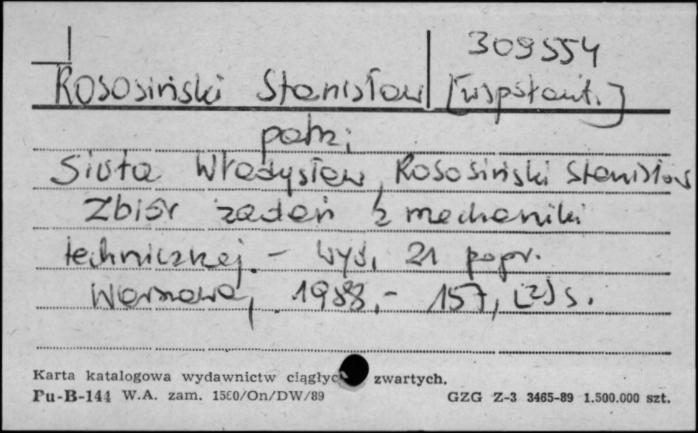 309554
Rososiński Stanisław [współaut.]
patrz:
Siuta Władysław, Rososiński Stanisław
Zbiór zadań z mechaniki
technicznej. - Wyd. 21 popr.
Warszawa, 1988. - 157, [2] s.
Karta katalogowa wydawnictw ciągłyc zwartych.
Pu-B-144 W.A. zam. 1560/On/DW/89 GZG Z-3 3465-89 1.500.000 szt.